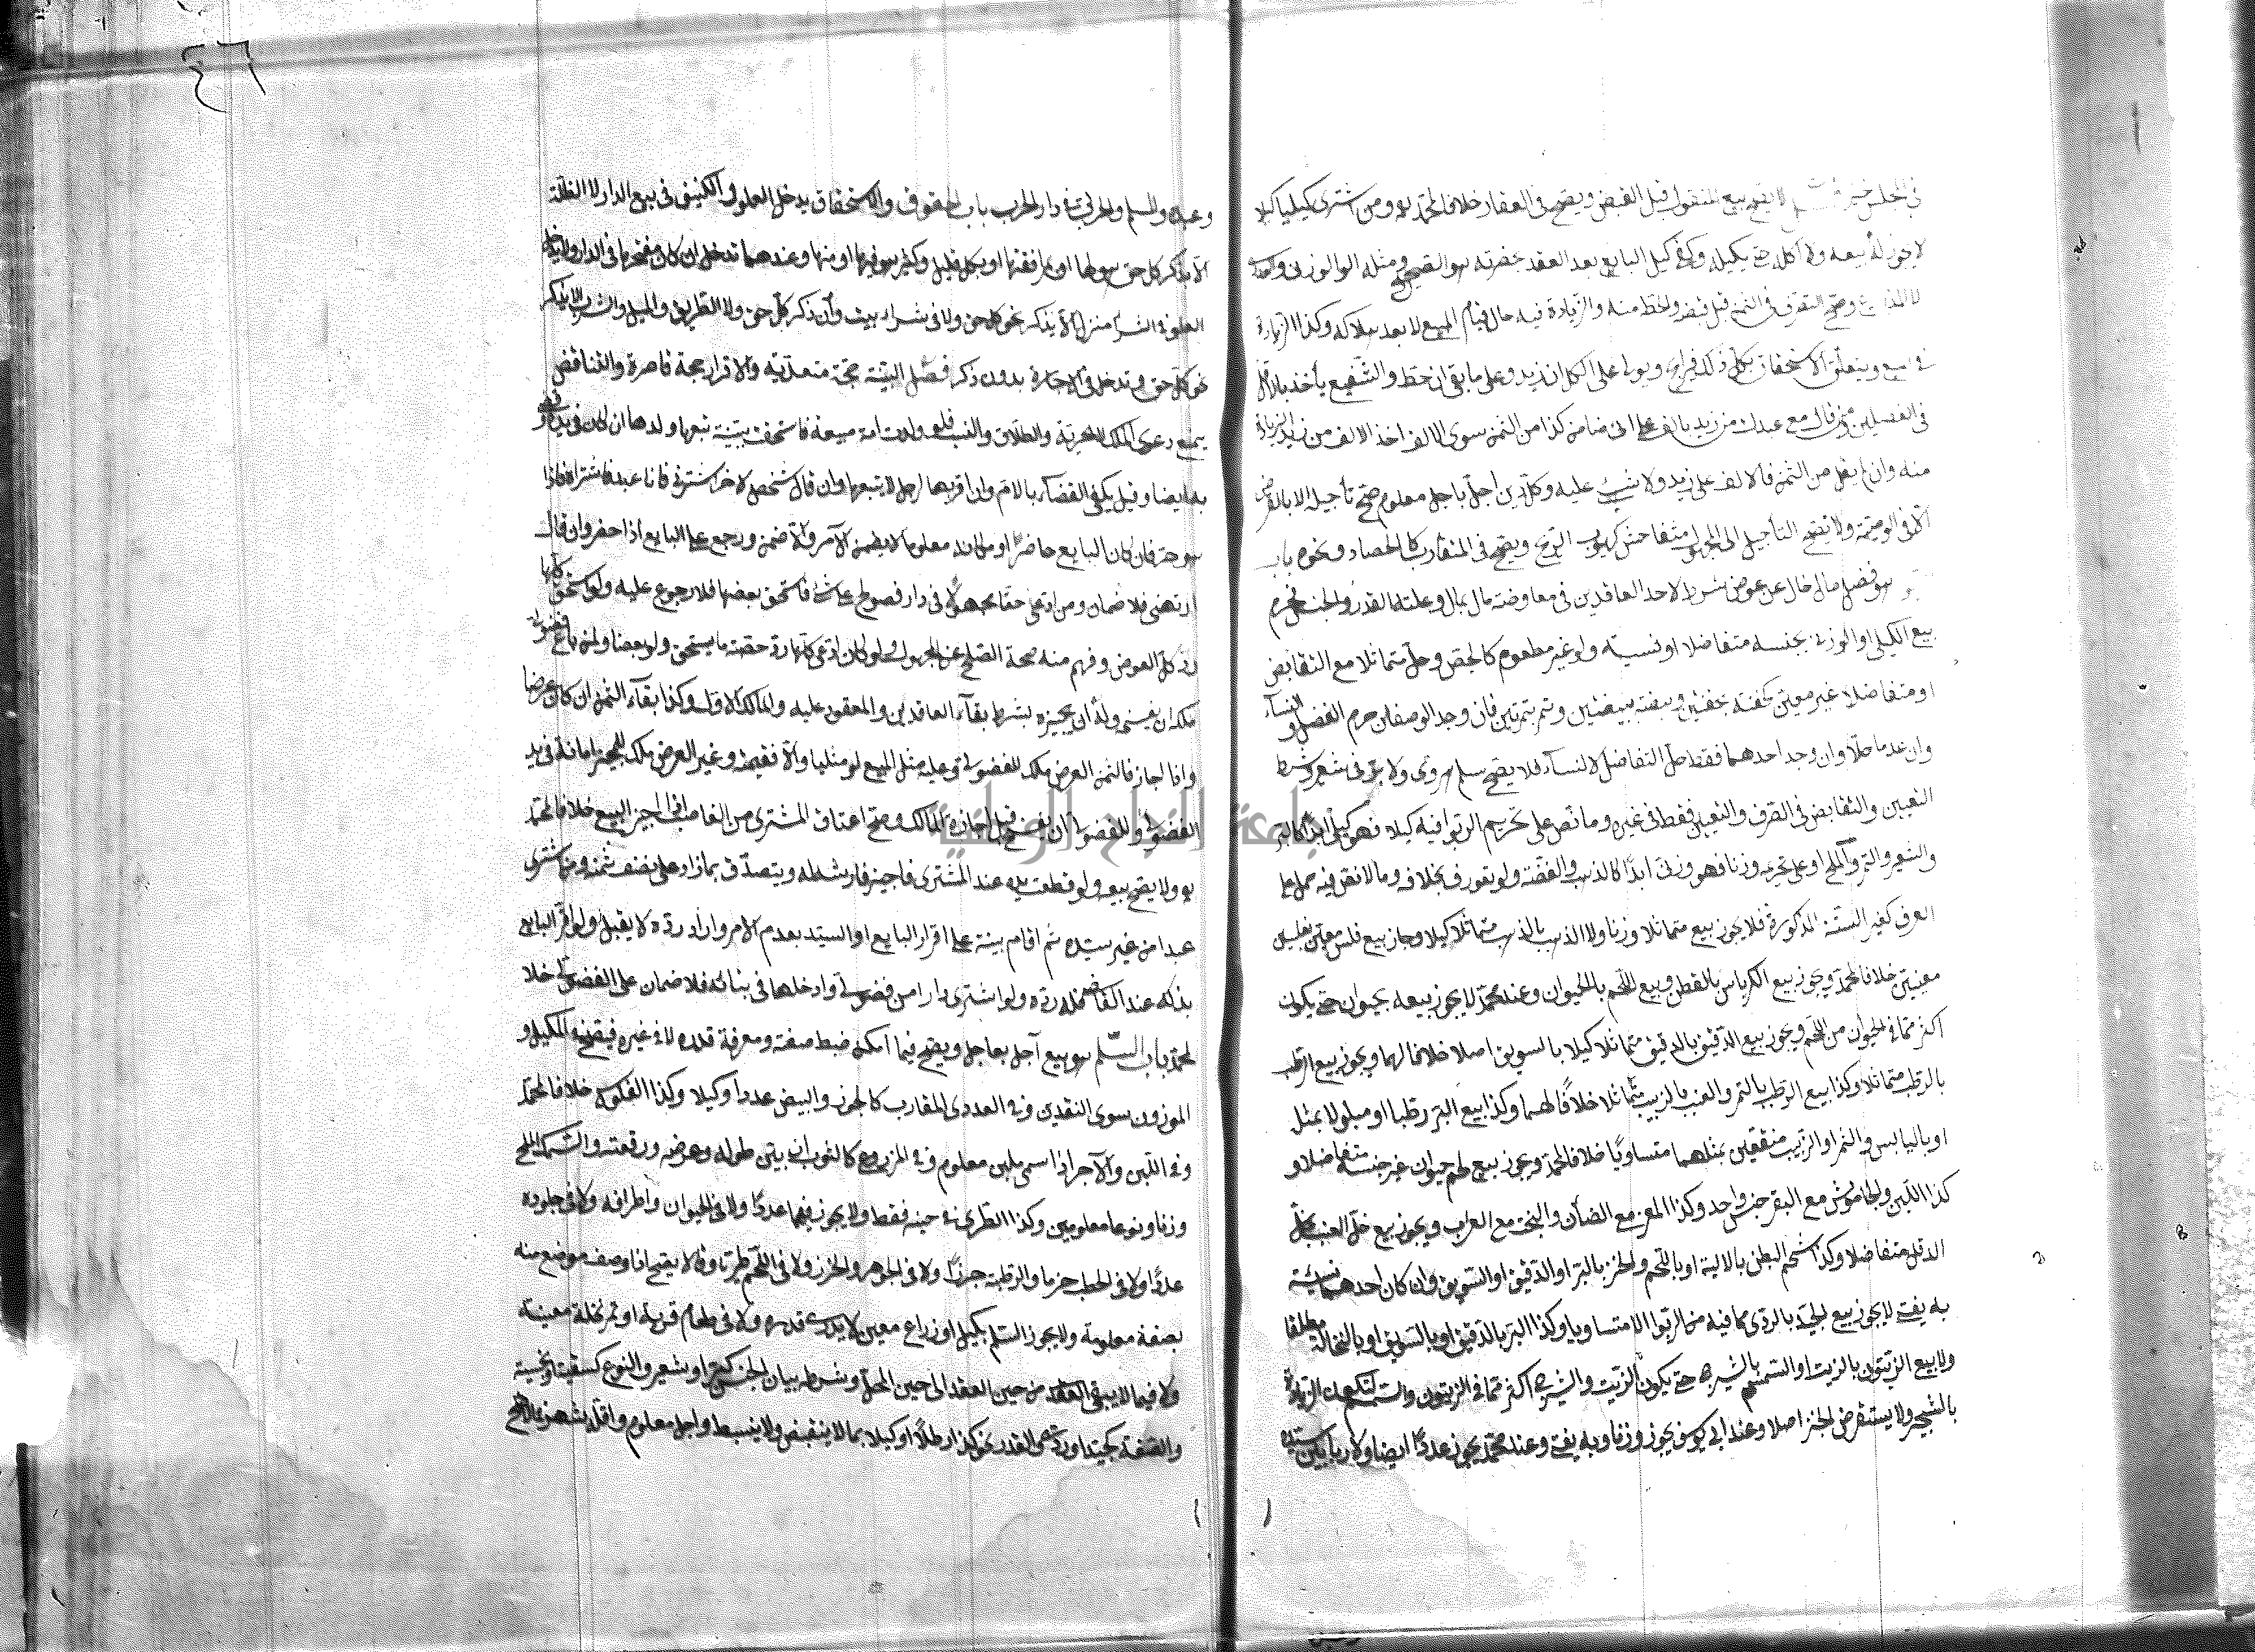 في المجلس خير فصل لا يصح بيع المنقول قبل القبض ويصح في العقار خلافا لمحمد ومن اشترى كيليا كيلا
لا يجوز له بيعه ولا اكله حتى يكيله وكفى كيل البايع بعد العقد بحضرته هو الصحيح ومثله الوزني والعددي
لا المذروع وصح التصرف في الثمن قبل قبضه والحط منه والزيادة فيه حال قيام المبيع لا بعد هلاكه وكذا الزيادة
في المبيع ويتعلق الاستحقاق بكل ذلك فيرابح ويولي على الكل ان زيد وعلى ما بقي ان حط والشفيع يأخذ بالاقل
في الفصلين ومن قال بع عبدك من زيد بالف على اني ضامن كذا من الثمن سوى الالف اخذ الالف من زيد والزيادة
منه وان لم يقل من الثمن فالالف على زيد ولا شيء عليه وكل دين اجل باجل معلوم صح تأجيله الا القرض
الا في الوصية ولا يصح التأجيل الى المجهول متفاحش كهبوب الريح ويصح في المتقارب كالحصاد ونحوه باب
هو فضل مال خال عن عوض شرط لاحد العاقدين في معاوضة مال بمال وعلته القدر والجنس فحرم
بيع الكيلي او الوزني بجنسه متفاضلا او نسيئة ولو غير مطعوم كالجص وحل متماثلا مع التقابض
او متفاضلا غير معين كحفنة بحفنتين وبيضة ببيضتين وتمرة بتمرتين فان وجد الوصفان حرم الفضل والنسآء
وان عدما حلا وان وجد احدهما فقط حل التفاضل لا النسآء فلا يصح سلم هروي ولا بر في شعير وشرط
التعيين والتقابض في الصرف والتعيين فقط في غيره وما نص على تحريم الربوا فيه كيلا فهو كيلي ابدا كالبر
والشعير والتمر والملح او على تحريمه وزنا فهو وزني ابدا كالذهب والفضة ولو تعورف بخلافه وما لا نص فيه حمل على
العرف كغير الستة المذكورة فلا يجوز بيع متماثلا وزنا ولا الذهب بالذهب متماثلا كيلا وجاز بيع فلس معين بفلسين
معينين خلافا لمحمد ويجوز بيع الكرباس بالقطن وبيع اللحم بالحيوان وعند محمد لا يجوز بيعه بحيوان حتى يكون
اكثر مما في الحيوان من اللحم ويجوز بيع الدقيق بالدقيق متماثلا كيلا بالسويق اصلا خلافا لهما ويجوز بيع الرطب
بالرطب متماثلا وكذا بيع الرطب بالتمر والعنب بالزبيب متماثلا خلافا لهما وكذا بيع البر رطبا او مبلولا بمثله
او باليابس والتمر او الزبيب منقعين بمثلهما متساويا خلافا لمحمد ويجوز بيع لحم حيوان غير جنسه متفاضلا و
كذا اللبن والجاموس مع البقر جنس واحد وكذا المعز مع الضأن والبخت مع العراب ويجوز بيع خل العنب بخل
الدقل متفاضلا وكذا شحم البطن بالالية او باللحم والخبز بالبر او الدقيق او السويق وان كان احدهما نسيئة
به يفتى لا يجوز بيع الجيد بالردى مما فيه من الربوا الا متساويا وكذا البر بالدقيق او بالسويق او بالنخالة مطلقا
ولا بيع الزيتون بالزيت او السمسم بالشيرج حتى يكون الزيت والشيرج اكثر مما في الزيتون والسمسم لتكون الزيادة
بالثجير ولا يستقرض الخبز اصلا وعند ابي يوسف يجوز وزنا وبه يفتى وعند محمد يجوز عددا ايضا ولا ربا بين سيده
وعبده والمسلم والحربي في دار الحرب باب الحقوق والاستحقاق يدخل العلو والكنيف في بيع الدار لا الظلة
الا بذكر كل حق هو لها او بمرافقها او بكل قليل وكثير هو فيها او منها وعندهما تدخل ان كان مفتحها في الدار ولا يدخل
العلو في شراء منزل الا بذكر نحو كل حق ولا في شراء بيت وان ذكر كل حق ولا الطريق والمسيل والشرب الا بذكر
نحو كل حق وتدخل في الاجارة بدون ذكر فصل البينة حجة متعدية والاقرار حجة قاصرة والتناقض
يمنع دعوى الملك لا الحرية والطلاق والنسب فلو ولدت امة مبيعة فاستحقت ببينة تبعها ولدها ان كان في يده وقضي
به ايضا وقيل يكفي القضآء بالام وان اقر بها لرجل لا يتبعها وان قال شخص لاخر اشترني فانا عبد فاشتراه فاذا
هو حر فان كان البايع حاضرا او مكانه معلوما لا يضمن الآمر والا ضمن ورجع على البايع اذا حضر وان قال
ارتهني فلا ضمان ومن ادعى حقا مجهولا في دار فصولح على شيء فاستحق بعضها فلا رجوع عليه ولو استحق كلها
رد كل العوض وفهم منه صحة الصلح عن المجهول ولو كان ادعى كلها رد حصة ما يستحق ولو بعضا ولمن باع فضولي
ملكه ان يفسخه وله ان يجيزه بشرط بقآء العاقدين والمعقود عليه والمالك الاول وكذا بقآء الثمن ان كان عرضا
واذا اجاز فالثمن العرض ملك للفضولي وعليه مثل المبيع لو مثليا والا فقيمته وغير العرض ملك للمجيز امانة في يد
الفضولي وللفضولي ان يفسخ قبل اجازة المالك وصح اعتاق المشتري من الغاصب اذا اجيز البيع خلافا لمحمد
لا ولا يصح بيعه ولو قطعت يده عند المشتري فاجيز فارشها له ويتصدق بما زاد على نصف ثمنه ومن اشترى
عبدا من غير سيده ثم اقام بينة على اقرار البايع او السيد بعدم الامر واراد رده لا يقبل ولو اقر البايع
بذلك عند القاضي فله رده ولو اشترى دارا من فضولي وادخلها في بنائه فلا ضمان على الفضولي خلافا
لمحمد باب السلم هو بيع آجل بعاجل ويصح فيما امكن ضبط صفته ومعرفة قدره لا في غيره فيصح في المكيل و
الموزون سوى النقدين وفي العددي المتقارب كالجوز والبيض عددا وكيلا وكذا الفلوس خلافا لمحمد
وفي اللبن والآجر اذا سمى ملبن معلوم وفي المزروع كالثوب ان بين طوله وعرضه ورقعته والسمك المليح
وزنا ونوعا معلومين وكذا الطري في حينه فقط ولا يجوز فيهما عددا ولا في الحيوان واطرافه ولا في جلوده
عددا ولا في الحطب حزما والرطبة جرزا ولا في الجوهر والخرز ولا في اللحم طريا وقالا يصح اذا وصف موضع منه
بصفة معلومة ولا يجوز السلم بكيل او ذراع معين لا يدرى قدره ولا في طعام قرية او تمر نخلة معينة
ولا فيما لا يبقى من حين العقد الى حين المحل وشرطه بيان الجنس كبر او شعير والنوع كسقية او بخسية
والصفة كجيد او ردي والقدر نحو كذا رطلا او كيلا بما لا ينقبض ولا ينبسط واجل معلوم واقله شهر في الاصح